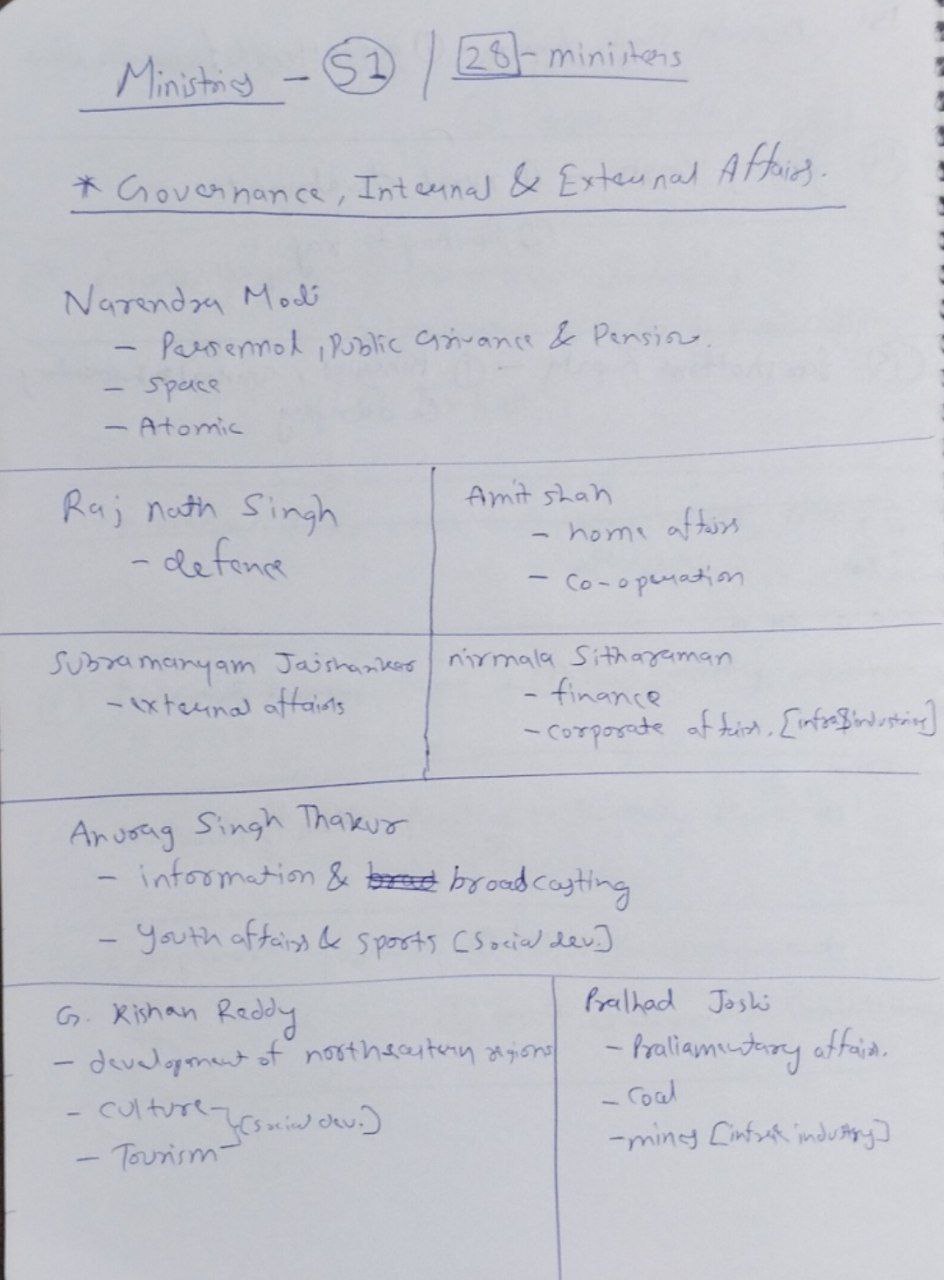 Ministries - 51 / 28 - ministers
* Governance, Internal & External Affairs.
Narendra Modi
- Personnol, Public Grivance & Pension.
- Space
- Atomic
Raj nath Singh
- defence
Amit shah
- home affairs
- co-operation
Subramanyam Jaishankar
- external affairs
nirmala Sitharaman
- finance
- corporate affairs. [infra & industries]
Anurag Singh Thakur
- information & broadcasting
- Youth affairs & sports [Social dev.]
G. Kishan Reddy
- development of northeastern regions
- culture
[Social dev.]
- Tourism
Pralhad Joshi
- Praliamentary affairs.
- coal
- mines [infra & industry]